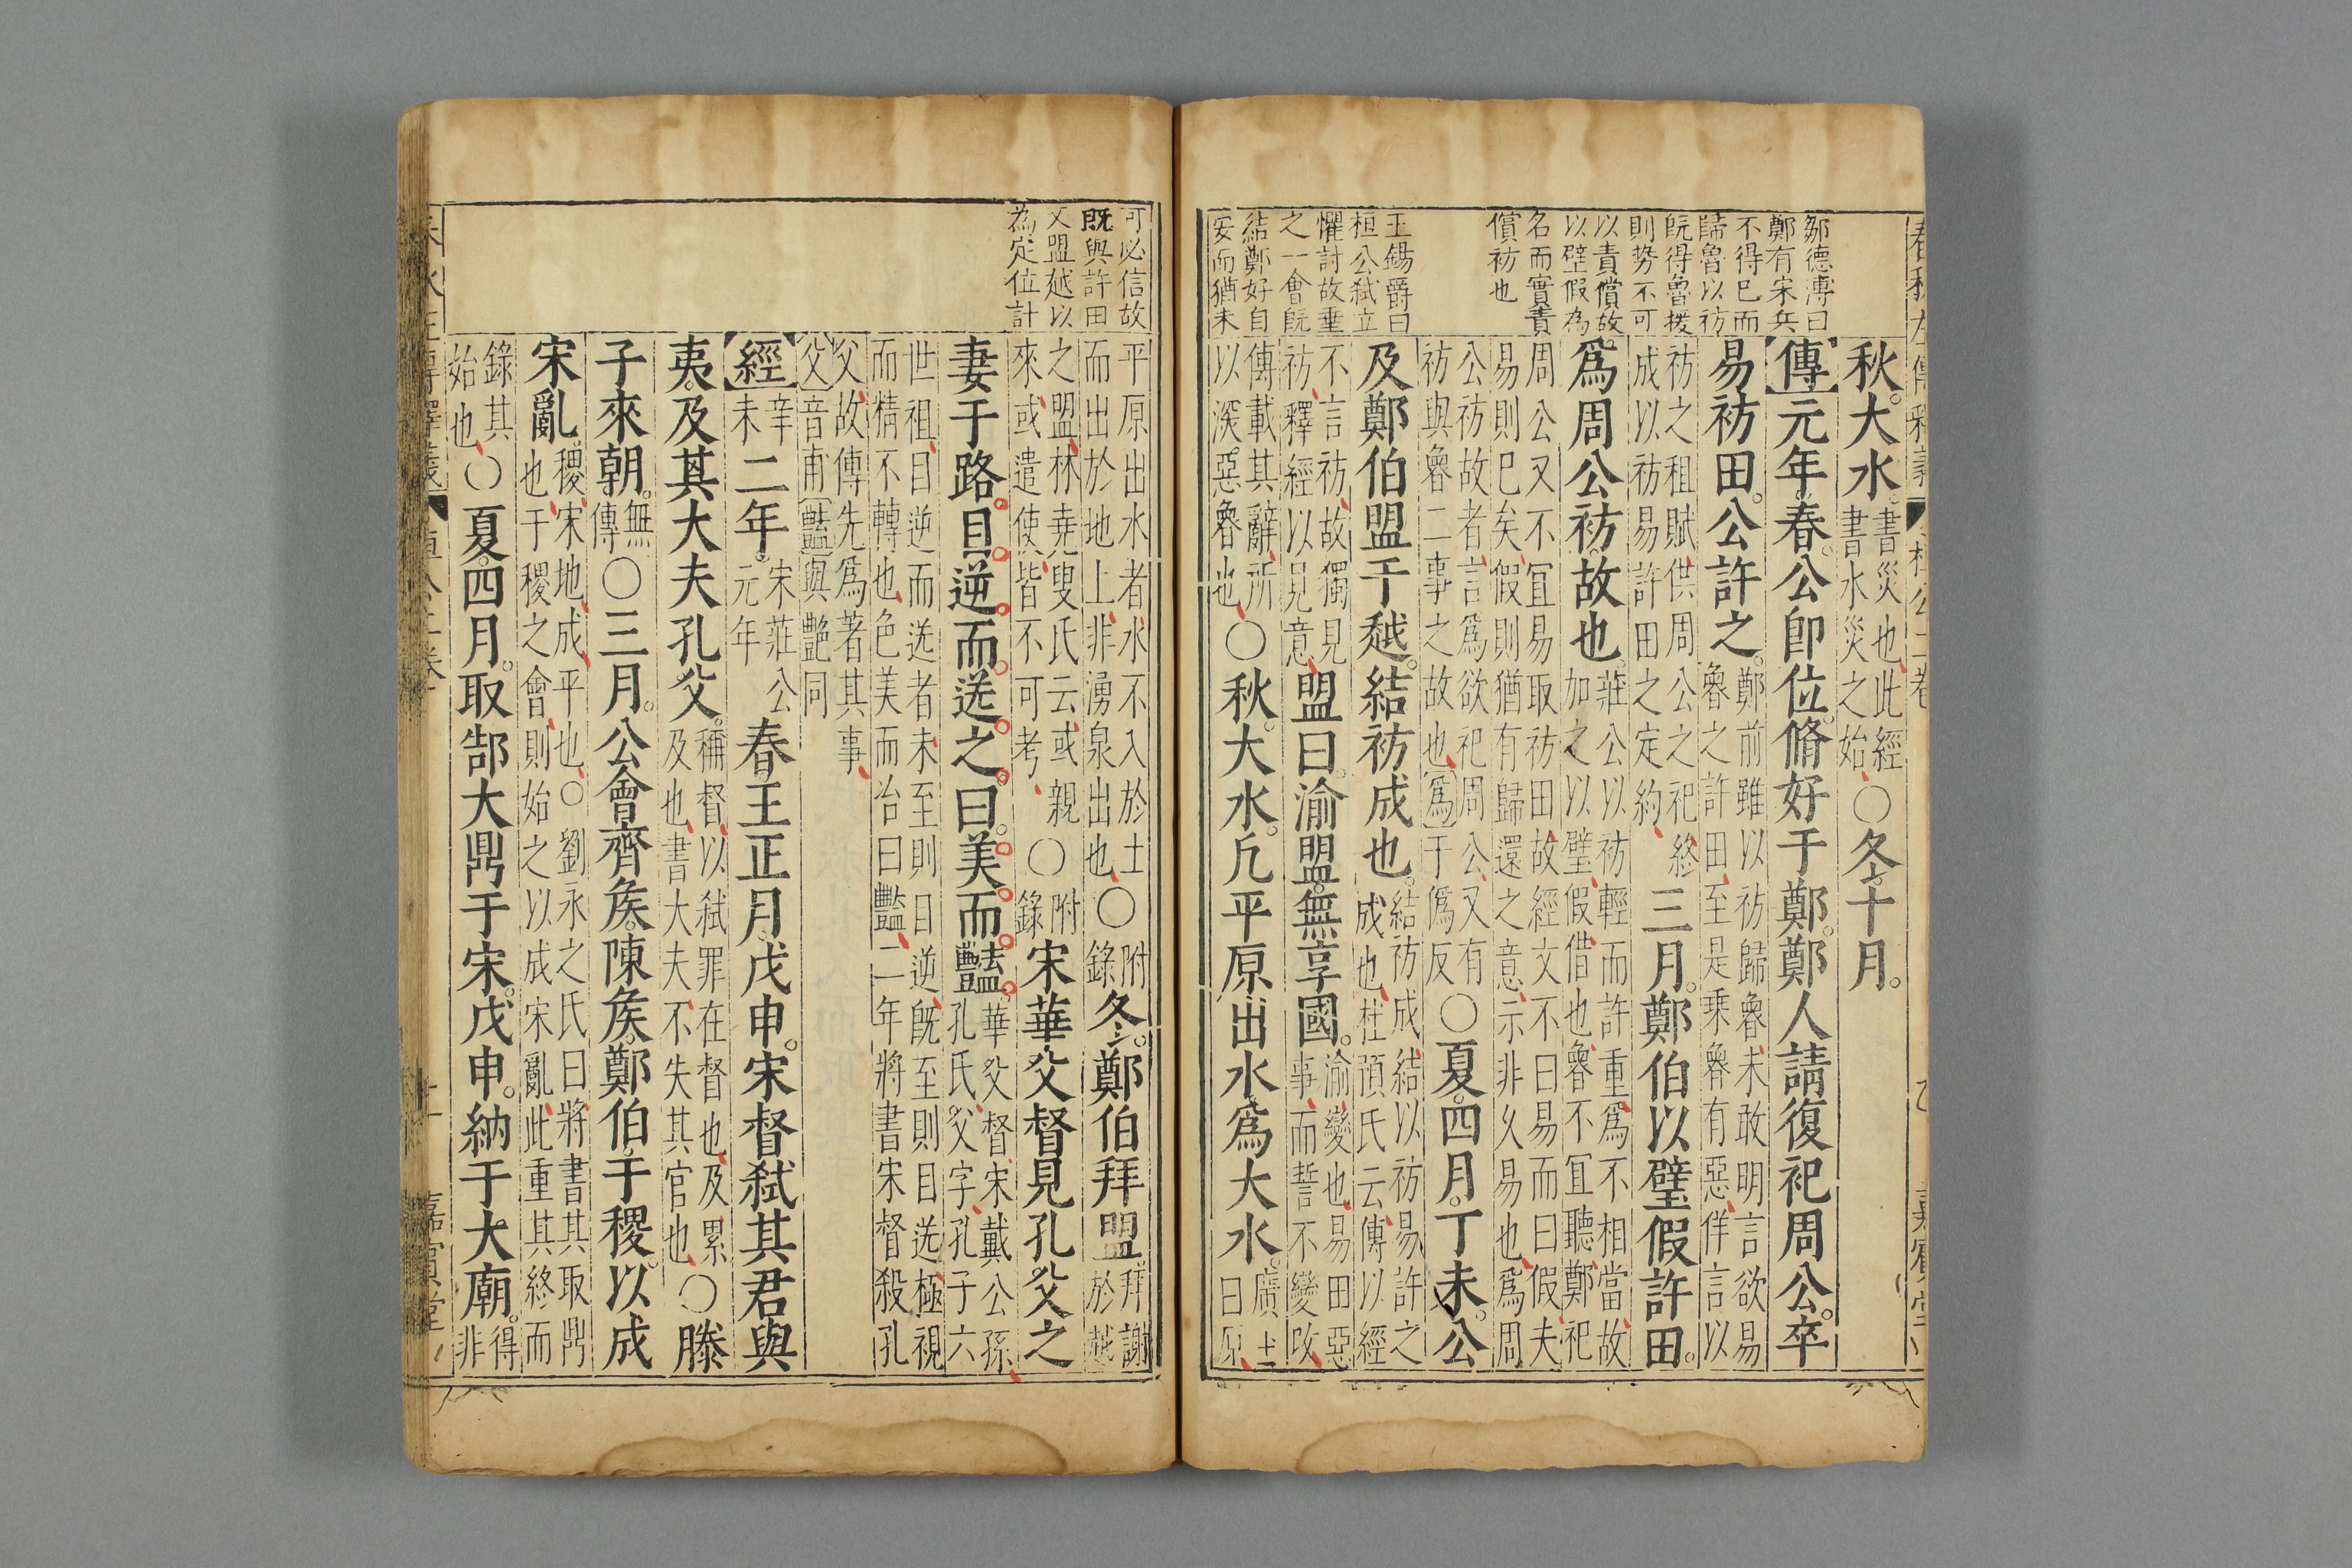 鄒德溥曰
鄭有宋兵
不得已而
歸魯以祊
旣得魯援
則势不可
以責償故
以璧假為
名而實責
償祊也
王錫爵曰
桓公弒立
懼討故垂
之一會旣
結鄭好自
安而猶未
秋。大水。書災也此經書水災之始○冬。十月。
【傳】元年。春。公卽位。脩好于鄭。鄭人請復祀周公。卒
易祊田。公許之。鄭前雖以祊歸魯未敢明言欲易魯之許田至是乗魯有惡佯言以
祊之租賦供周公之祀終成以祊易許田之定約三月。鄭伯以璧假許田。
爲周公祊故也。莊公以祊輕而許重爲不相當故加之以璧假借也魯不冝聽鄭祀
周公又不冝易取祊田故經文不曰易而曰假夫易則已矣假則猶有歸還之意示非乆易也爲周
公祊故者言爲欲祀周公又有祊與魯二事之故也〔爲〕于僞反○夏。四月。丁未。公
及鄭伯盟于越。結祊成也。結祊成結以祊易許之成也杜預氏云傳以經
不言祊故獨見祊釋經以見意盟曰。渝盟。無享國。渝變也易田惡事而誓不變改
傳載其辭所以深惡魯也○秋。大水。凢平原出水爲大水。廣土曰原
可必信故
旣與許田
又盟越以
為定位計
平原出水者水不入於土而出於地上非湧泉出也○附錄冬。鄭伯拜盟。拜謝於越
之盟林堯叟氏云或親來或遣使皆不可考○附錄宋華父督見孔父之
妻于路。目逆而送之。曰。美而豔。華父督宋戴公孫孔氏父字孔子六
世祖目逆而送者未至則目逆旣至則目送極視而精不轉也色美而冶曰豔二年將書宋督殺孔
父故傳先爲著其事〔父〕音甫〔豔〕與艶同
【經】辛未二年。宋莊公元年春王正月。戊申。宋督弒其君與
夷。及其大夫孔父。稱督以弒罪在督也及累及也書大夫不失其官也○滕
子來朝。無傳○三月。公會齊侯。陳侯。鄭伯。于稷。以成
宋亂。稷宋地成平也○劉永之氏曰將書其取鼎也于稷之會則始之以成宋亂此重其終而
錄其始也○夏。四月。取郜大鼎于宋。戊申。納于大廟。得非